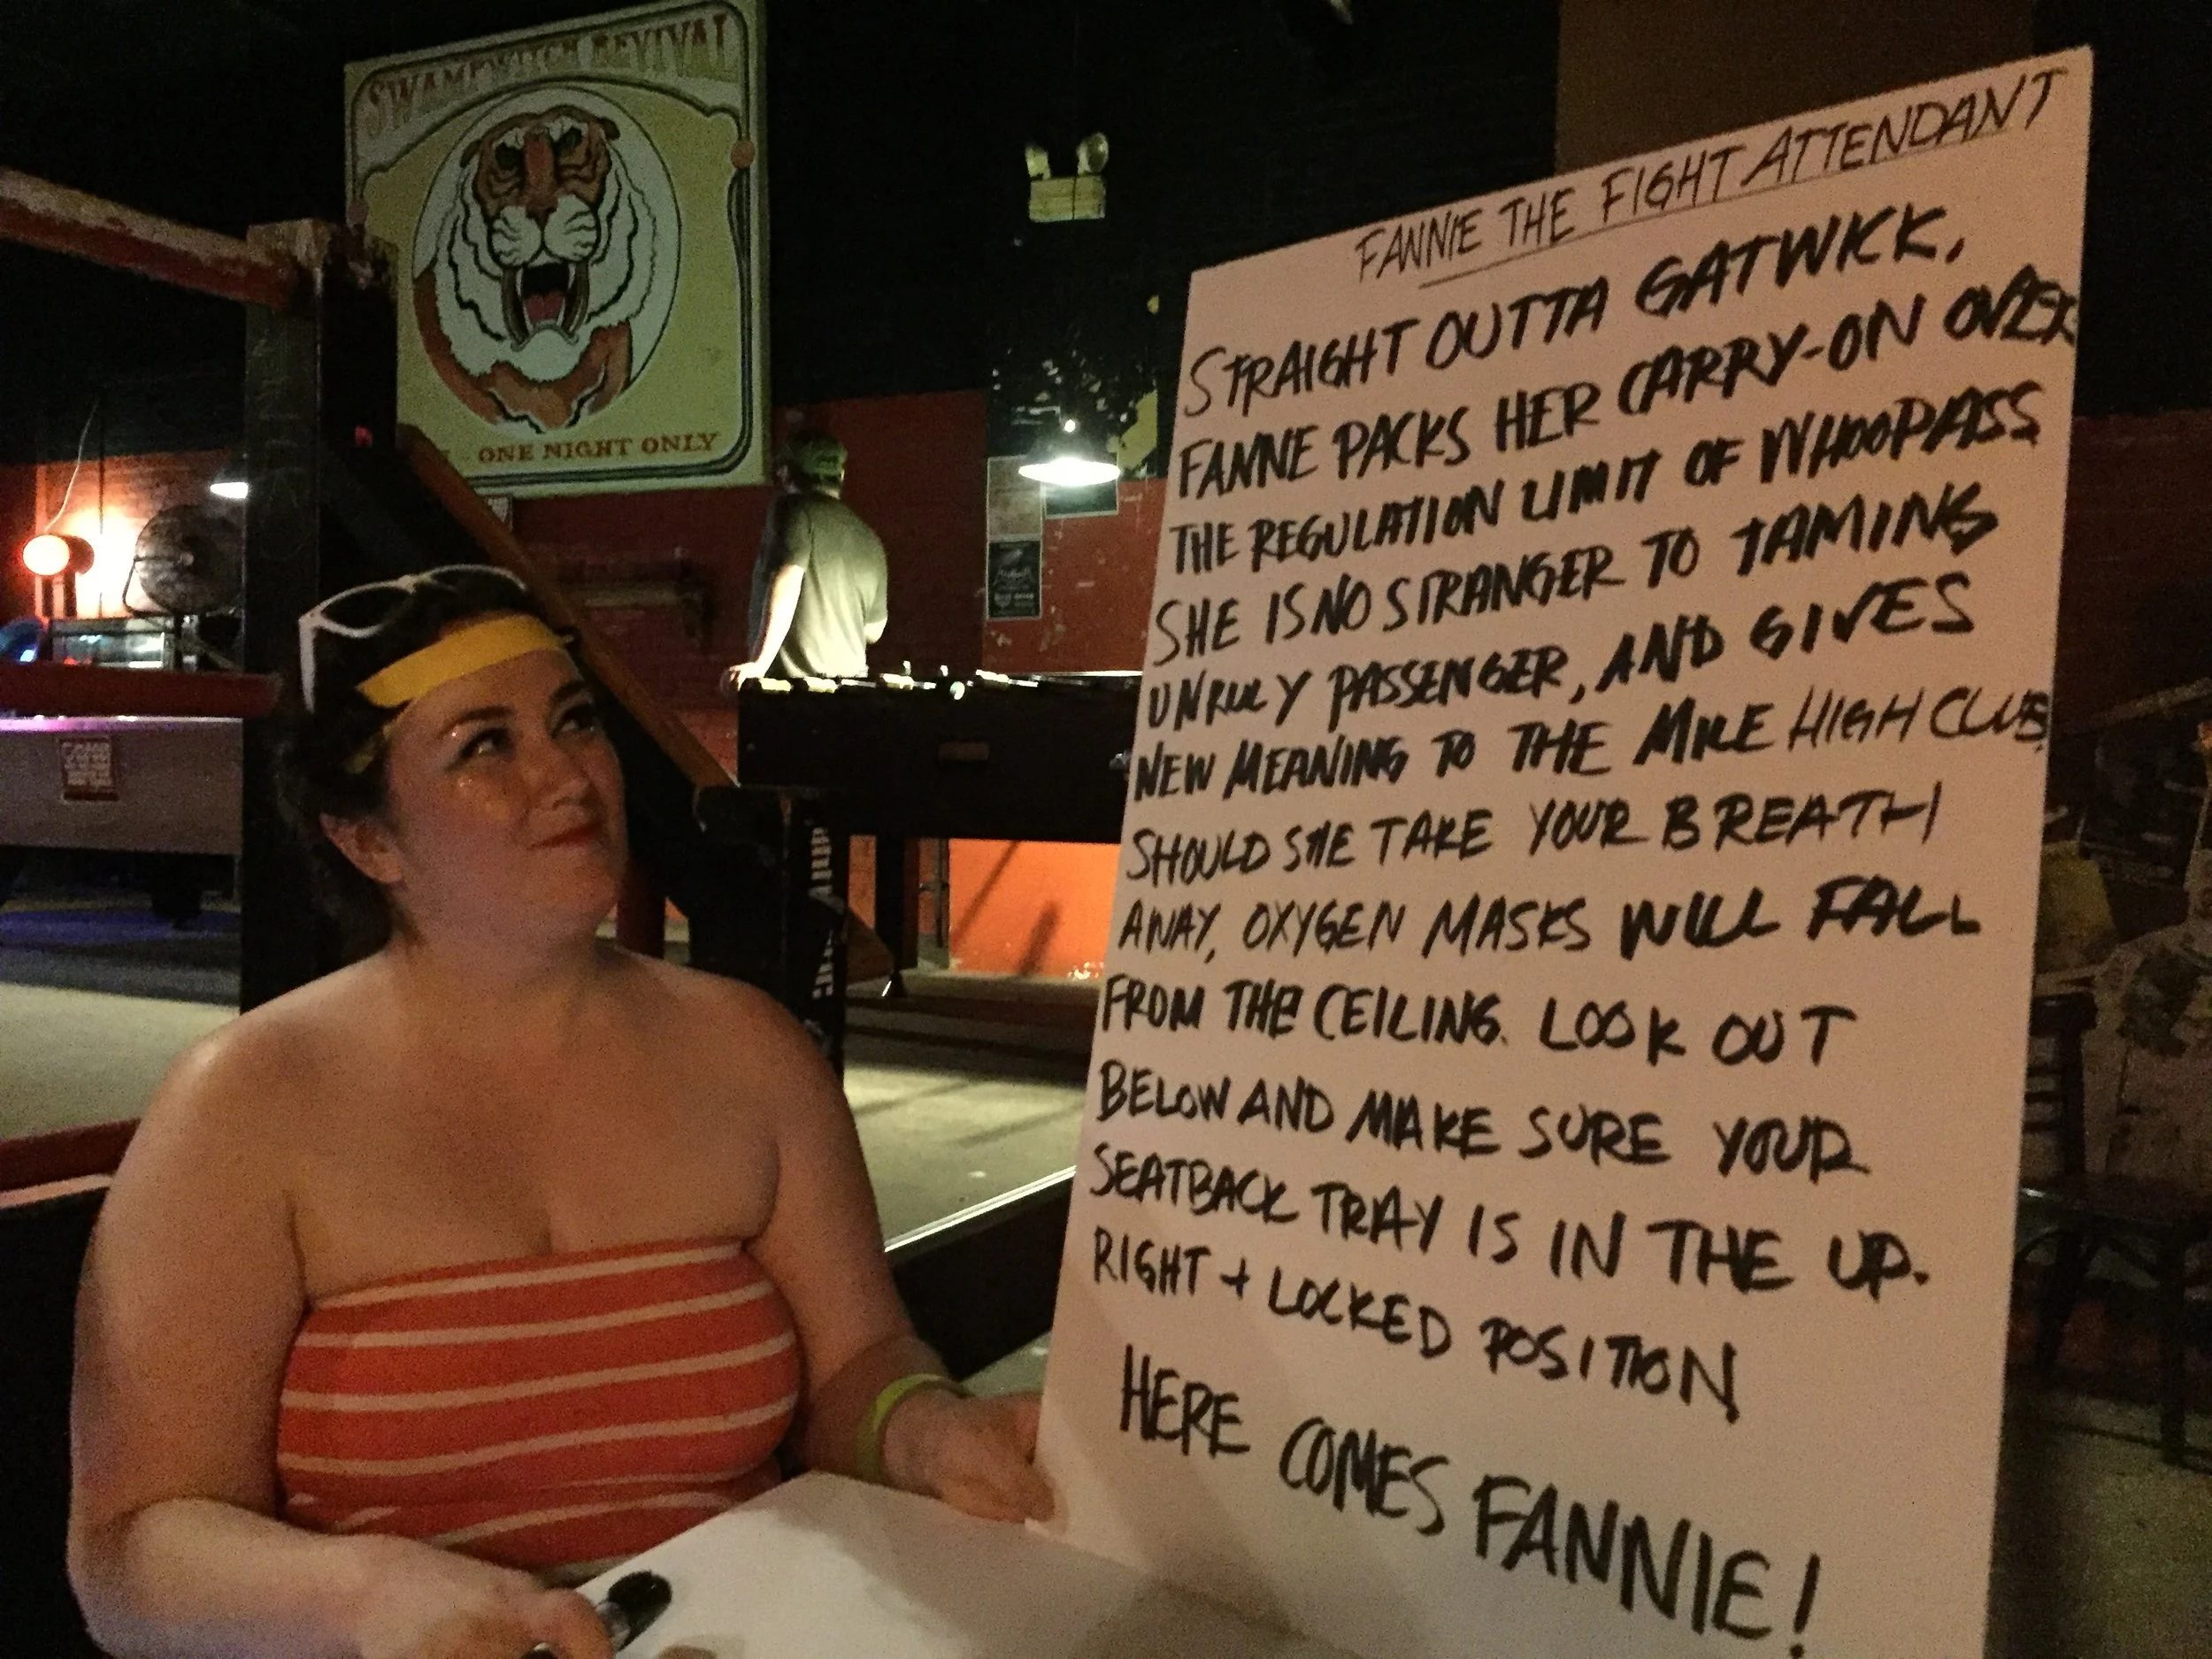 SWAMPWITCH REVIVAL
ONE NIGHT ONLY
FANNIE THE FIGHT ATTENDANT
STRAIGHT OUTTA GATWICK,
FANNE PACKS HER CARRY-ON OVER
THE REGULATION LIMIT OF WHOOPASS
SHE IS NO STRANGER TO TAMING
UNRULY PASSENGER, AND GIVES
NEW MEANING TO THE MILE HIGH CLUB.
SHOULD SHE TAKE YOUR BREATH
AWAY, OXYGEN MASKS WILL FALL
FROM THE CEILING. LOOK OUT
BELOW AND MAKE SURE YOUR
SEATBACK TRAY IS IN THE UP.
RIGHT + LOCKED POSITION
HERE COMES FANNIE!